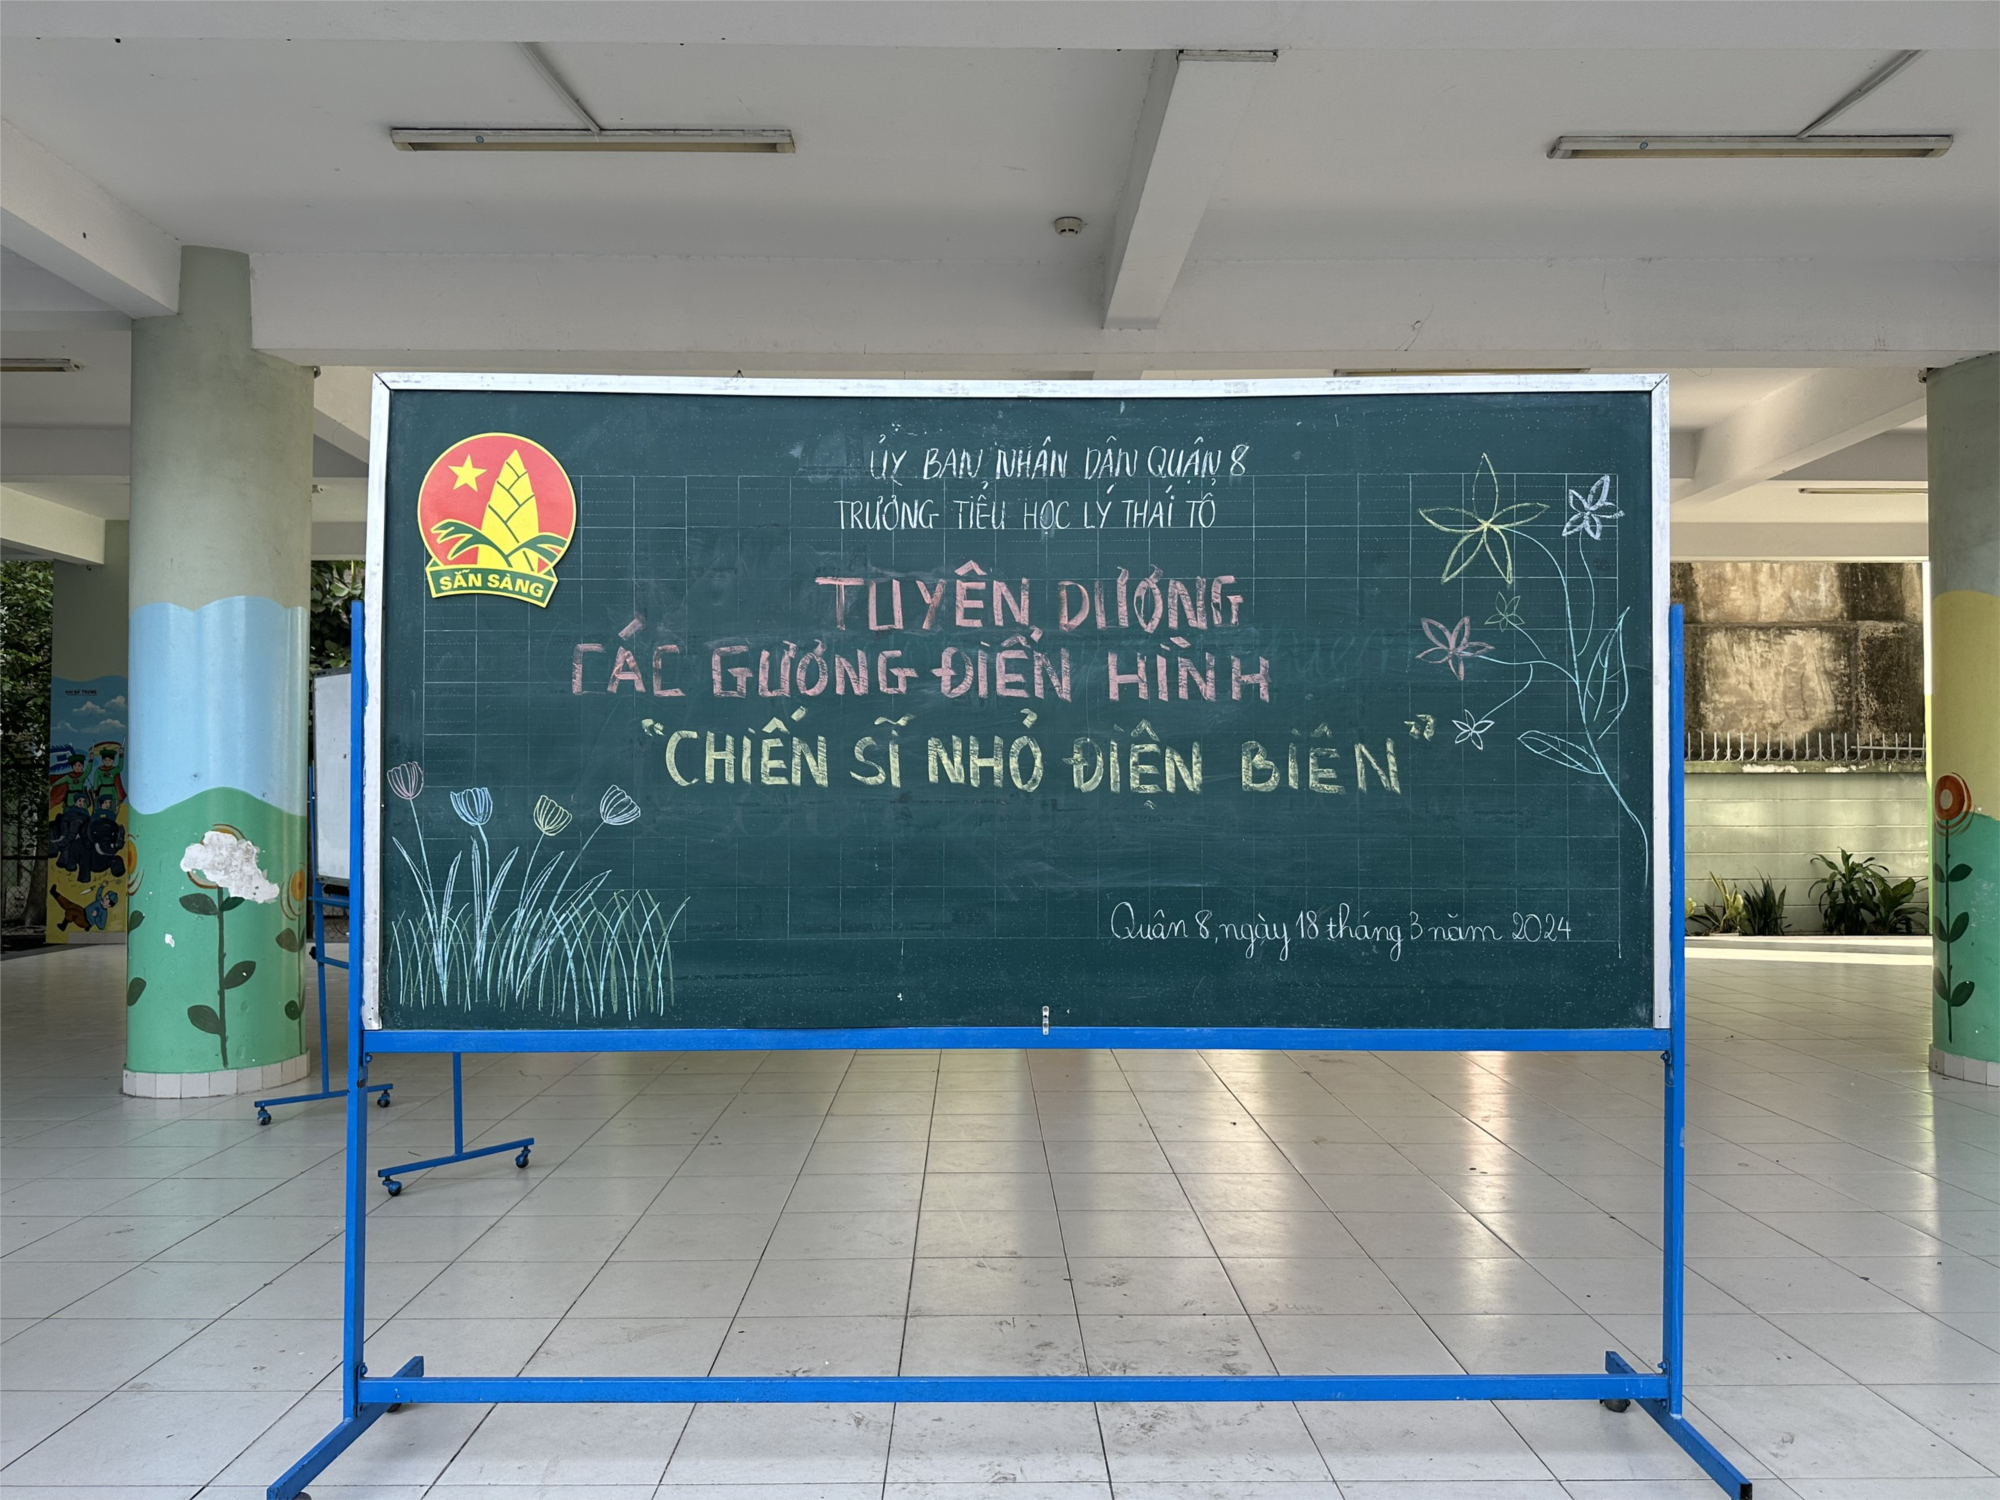 ỦY BAN NHÂN DÂN QUẬN 8
TRƯỜNG TIỂU HỌC LÝ THÁI TỔ
SẴN SÀNG
TUYÊN DƯƠNG
CÁC GƯƠNG ĐIỂN HÌNH
"CHIẾN SĨ NHỎ ĐIỆN BIÊN"
Quận 8, ngày 18 tháng 3 năm 2024